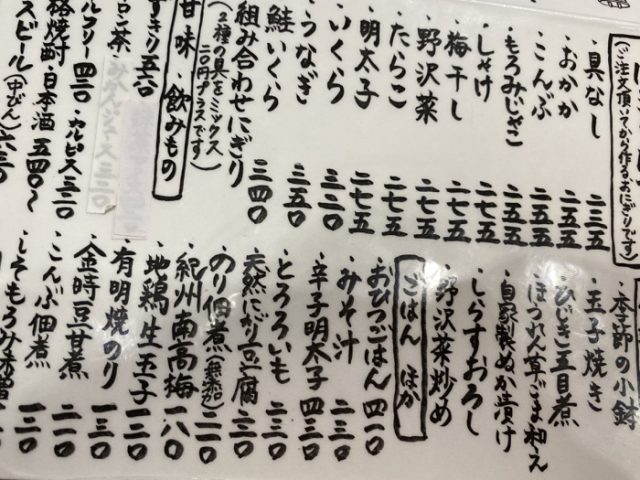 (ご注文頂いてから作る、おにぎりです)
・具なし 二三五
・おかか 二五五
・こんぶ 二五五
・もろみじゃこ 二五五
・しゃけ 二七五
・梅干し 二七五
・野沢菜 二七五
・たらこ 二七五
・明太子 二七五
・いくら 三二〇
・うなぎ 三五〇
・鮭いくら 三四〇
組み合わせにぎり
(2種の具をミックス
二〇円プラスです)
甘味・飲みもの
五六〇
みかんジュース 三二〇
ルフリー 四二〇・カルピス 三二〇
格焼酎・日本酒 五四〇〜
スビール(中びん) 六三〇
・季節の小鉢
・玉子焼き
・ひじき五目煮
・ほうれん草ごま和え
・自家製ぬか漬け
・しらすおろし
・野沢菜炒め
ごはん ほか
・おひつごはん 四一〇
・みそ汁 二三〇
・辛子明太子 四三〇
・とろろいも 二三〇
・天然にがり豆腐 二三〇
・のり佃煮(無添加) 二一〇
・紀州南高梅 一八〇
・地鶏生玉子 一三〇
・有明焼のり 一三〇
・金時豆甘煮 二一〇
・こんぶ佃煮 一三〇
・しそもろみ味噌